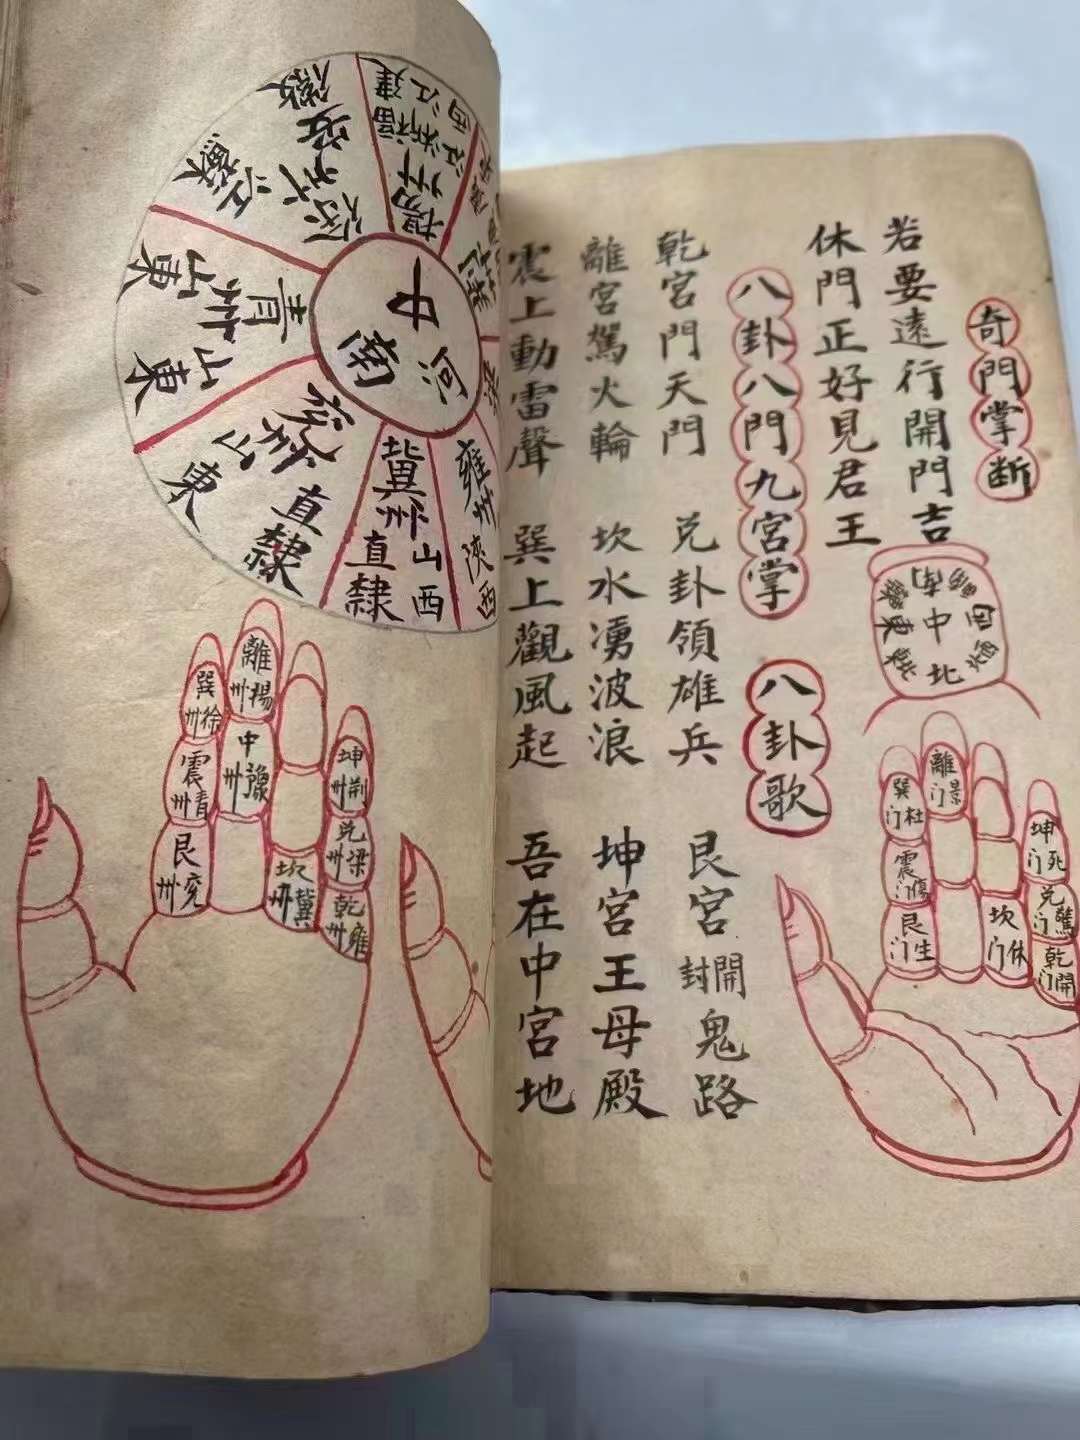 奇門掌断
若要遠行開門吉
休門正好見君王
八卦八門九宮掌
八卦歌
乾宮門天門
兑卦領雄兵
艮宮封開鬼路
離宮駕火輪
坎水湧波浪
坤宮王母殿
震上動雷聲
巽上觀風起
吾在中宮地
南
東
中
北
西
離门景
巽门杜
震门傷
艮门生
坎门休
坤门死
兑门驚
乾门開
中
河南
揚州
江西
浙江
福建
徐州
安徽
江蘇
青州
山東
山東
兖州
山東
直隸
冀州
山西
直隸
雍州
陝西
離揚州
巽徐州
震青州
艮兖州
中豫州
坎冀州
坤荆州
兑梁州
乾雍州